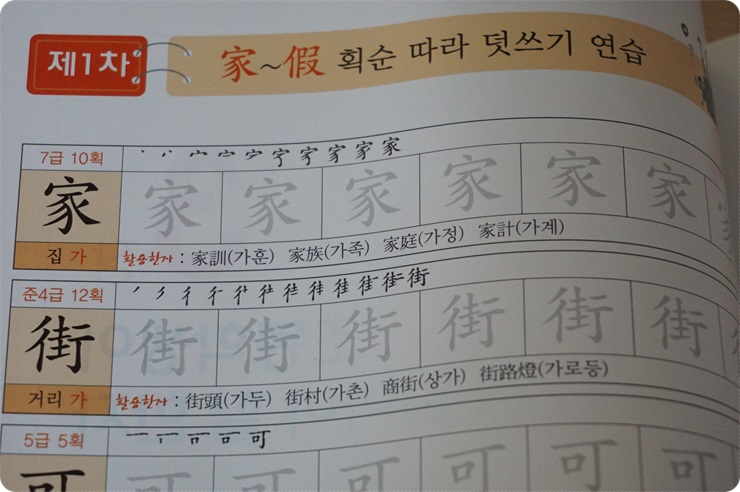 제1차
家~假 획순 따라 덧쓰기 연습
7급 10획
家 家 家 家 家 家 家
집 가
활용한자 : 家訓(가훈) 家族(가족) 家庭(가정) 家計(가계)
준4급 12획
街 街 街 街 街 街 街
거리 가
활용한자 : 街頭(가두) 街村(가촌) 商街(상가) 街路燈(가로등)
5급 5획
可 可 可 可 可 可 可